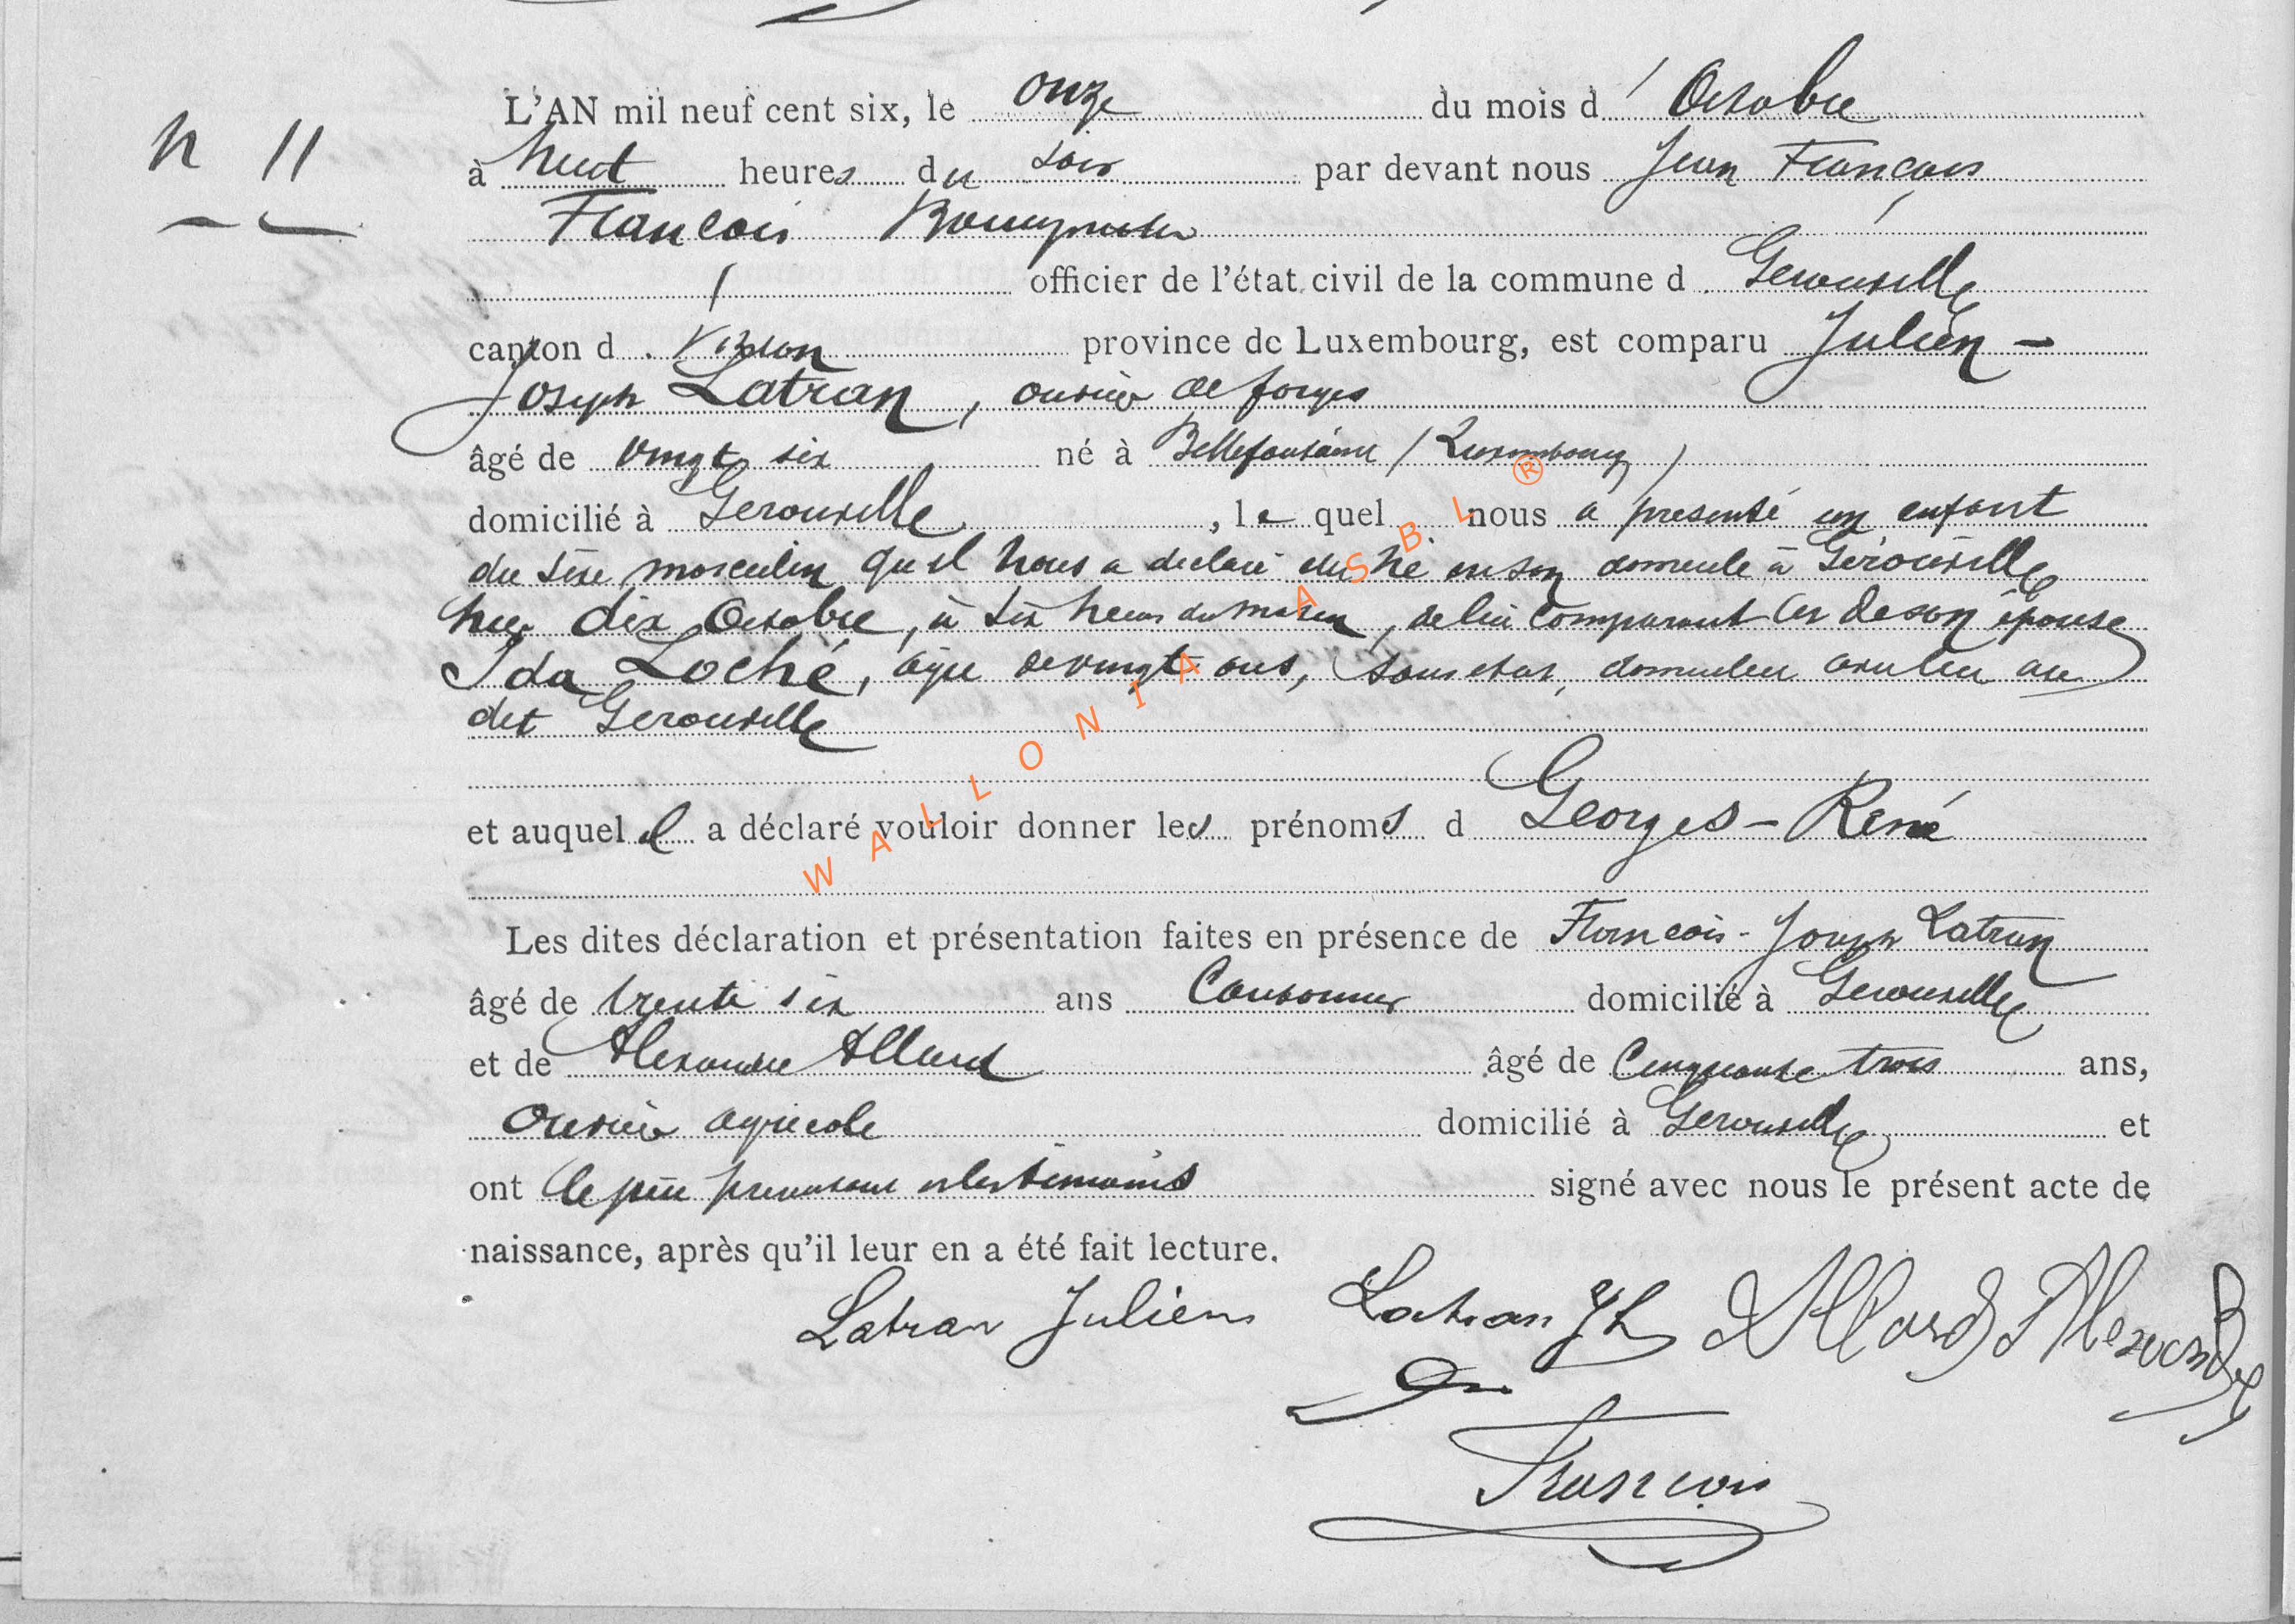 N 11
L'AN mil neuf cent six, le onze du mois d' Octobre
à huit heures du soir par devant nous Jean François
François Bourgmestre
officier de l'état civil de la commune d Gerouville
canton d Virton province de Luxembourg, est comparu Julien -
Joseph Latran, ouvrier de forges
âgé de vingt six né à Bellefontaine (Luxembourg)
domicilié à Gerouville, le quel nous a présenté un enfant
du sexe masculin qu'il nous a déclaré être né en son domicile à Gérouville
hier dix Octobre, à six heures du matin, de lui comparant et de son épouse
Ida Loché, âgée de vingt ans, sans état, domiciliée avec lui au
dit Gerouville
et auquel il a déclaré vouloir donner les prénoms d Georges - René
Les dites déclaration et présentation faites en présence de François - Joseph Latran
âgé de trente six ans Cantonnier domicilié à Gerouville
et de Alexandre Allard âgé de Cinquante trois ans,
Ouvrier agricole domicilié à Gerouville et
ont le père présentant et les témoins signé avec nous le présent acte de
naissance, après qu'il leur en a été fait lecture.
Latran Julien Latran Allard Alexandre
François
WALLONIA ASBL ®